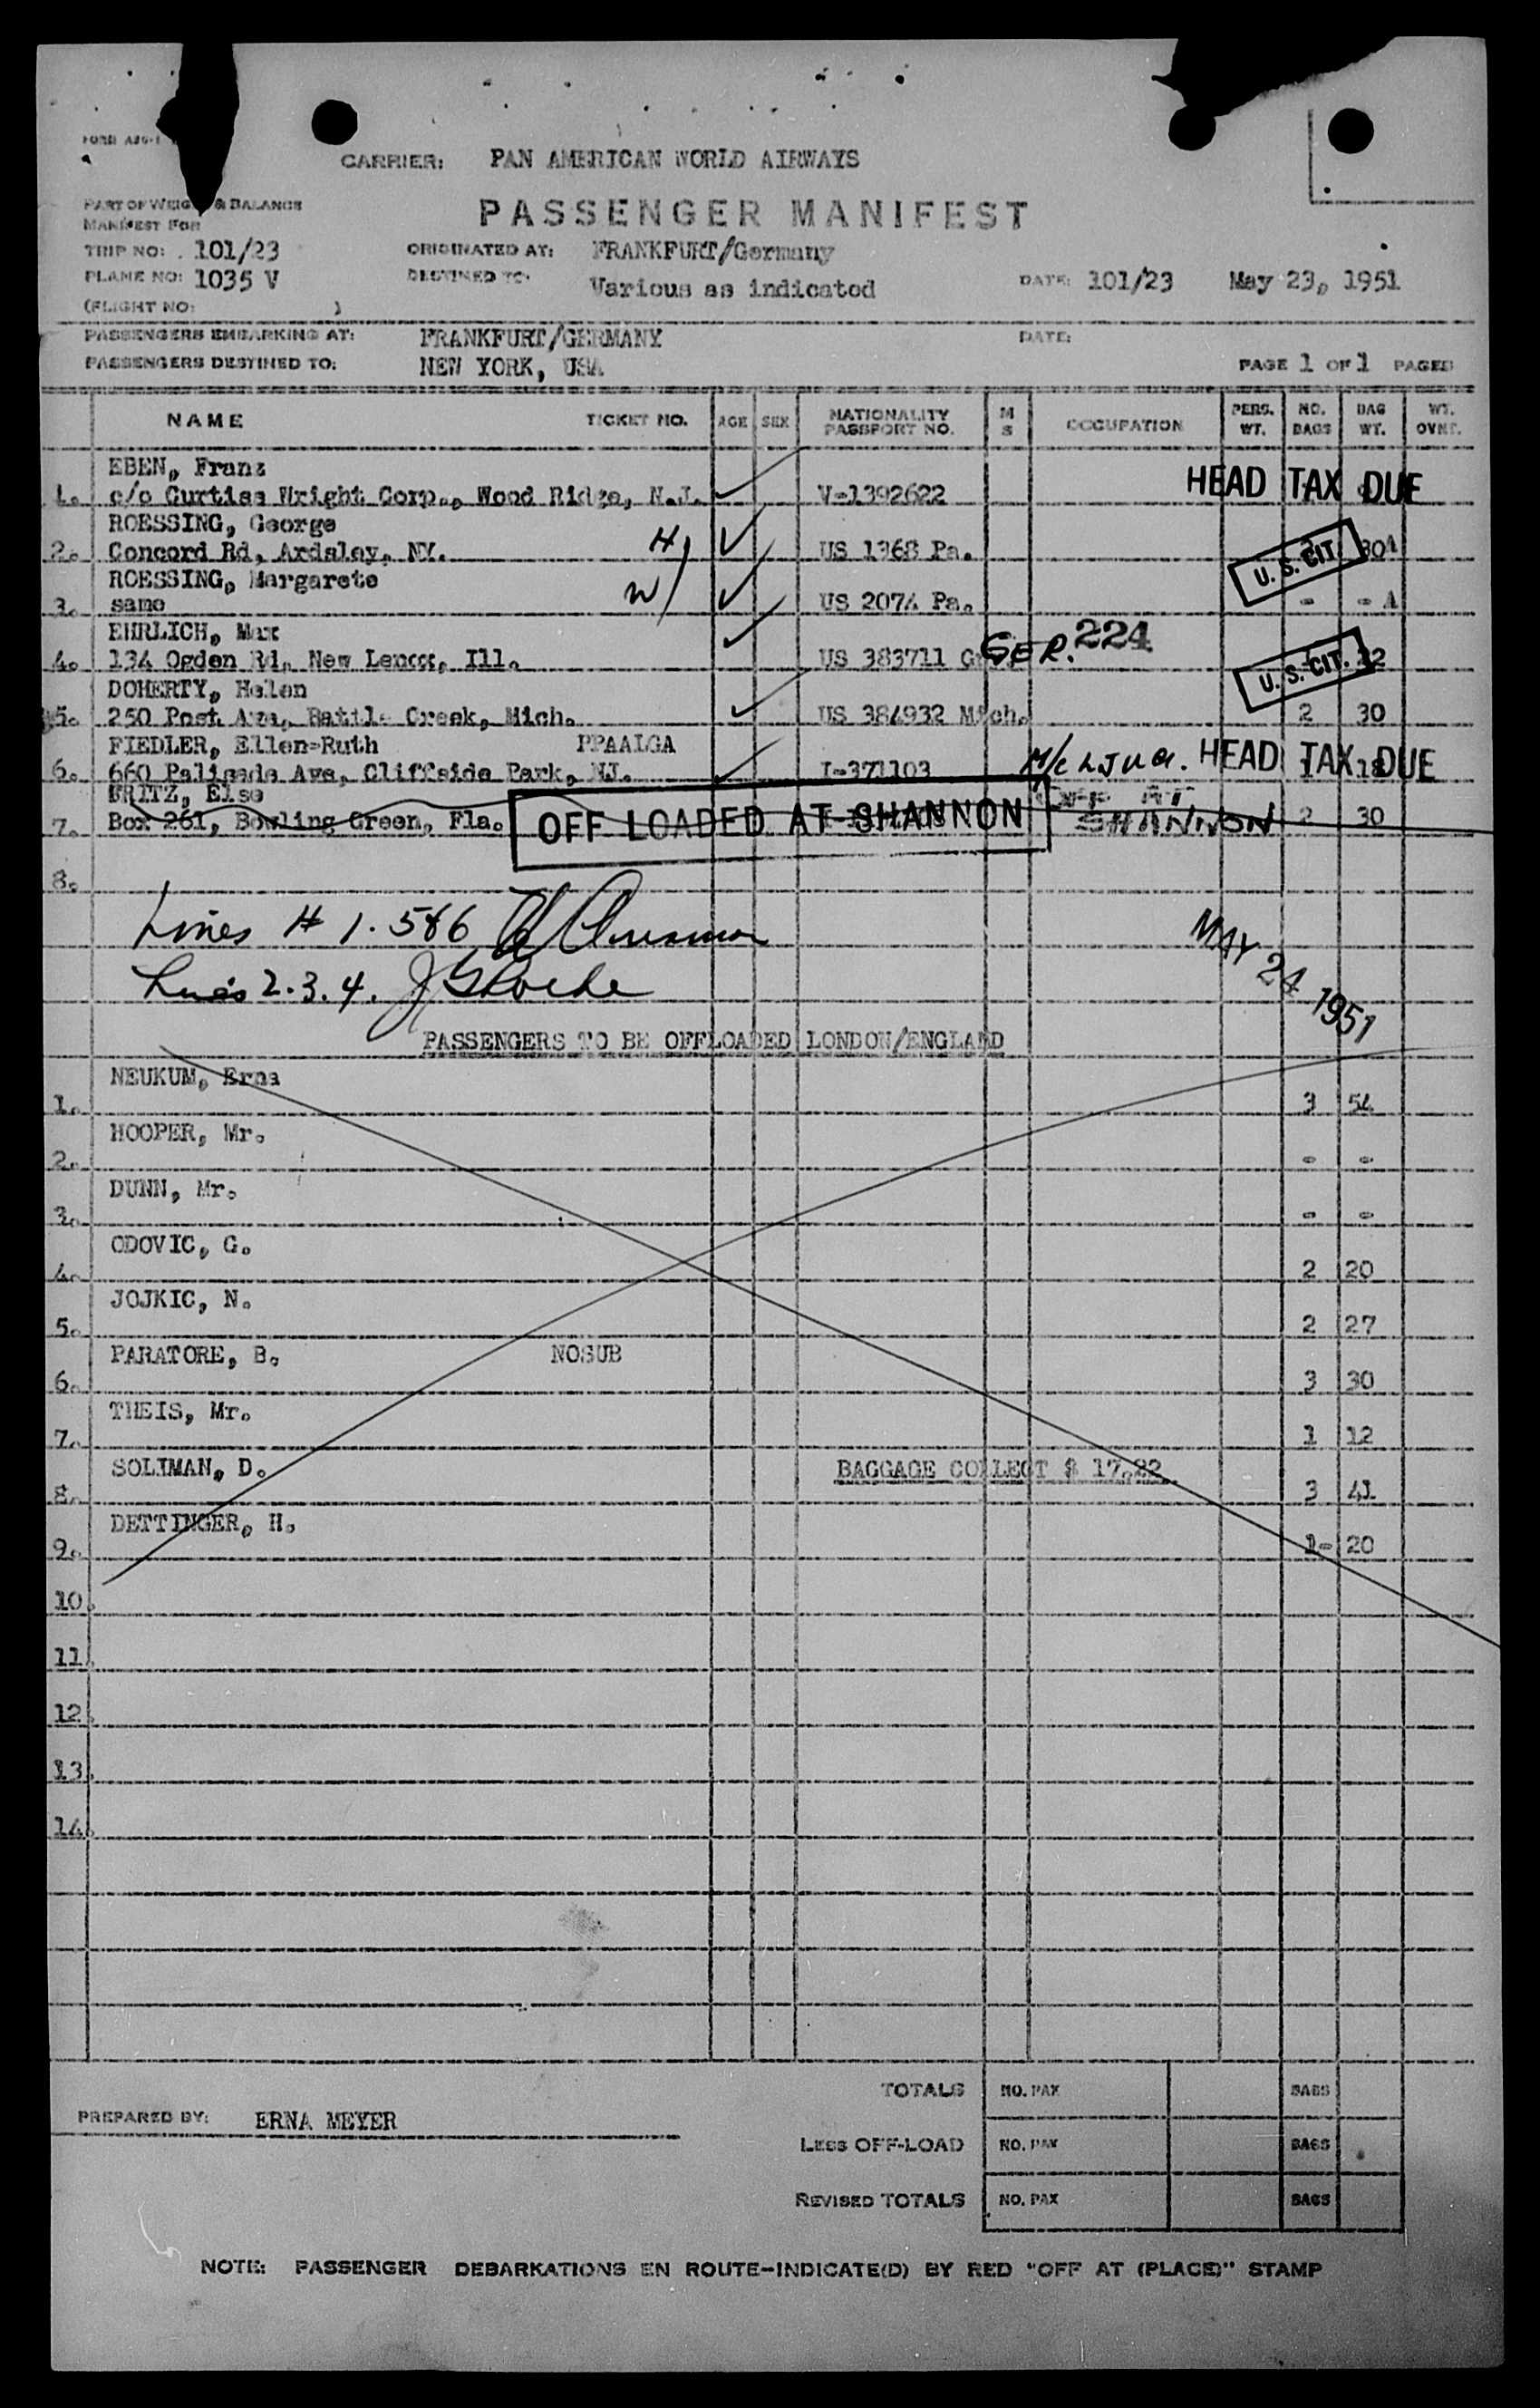 FORM A26-1
CARRIER: PAN AMERICAN WORLD AIRWAYS
PART OF WEIGHT & BALANCE
MANIFEST FOR
PASSENGER MANIFEST
TRIP NO: 101/23 ORIGINATED AT: FRANKFURT/Germany
PLANE NO: 1035 V DESTINED TO: Various as indicated DATE: 101/23 May 23, 1951
(FLIGHT NO: )
PASSENGERS EMBARKING AT: FRANKFURT/GERMANY DATE:
PASSENGERS DESTINED TO: NEW YORK, USA PAGE 1 OF 1 PAGES
NAME TICKET NO. AGE SEX NATIONALITY PASSPORT NO. M S OCCUPATION PERS. WT. NO. BAGS BAG WT. WT. OVNT.
EBEN, Franz
1. c/o Curtiss Wright Corp., Wood Ridge, N.J. V-1392622 HEAD TAX DUE
ROESSING, George
2. Concord Rd, Ardsley, NY. H) US 1368 Pa. U. S. CIT.
ROESSING, Margarete
3. same W) US 2074 Pa. - -
EHRLICH, Max
4. 134 Ogden Rd, New Lenox, Ill. US 383711 GER. 224 U. S. CIT.
DOHERTY, Helen
5. 250 Post Ave, Battle Creek, Mich. US 384932 Mich. 2 30
FIEDLER, Ellen-Ruth PPAALGA
6. 660 Palisade Ave, Cliffside Park, NJ. I-371103 HEAD TAX DUE
FRITZ, Else
7. Box 261, Bowling Green, Fla. OFF LOADED AT SHANNON SHANNON 2 30
8.
Lines # 1. 5&6
Lines 2. 3. 4.
MAY 24 1951
PASSENGERS TO BE OFFLOADED LONDON/ENGLAND
NEUKUM, Erna
1. 3 54
HOOPER, Mr.
2. - -
DUNN, Mr.
3. - -
ODOVIC, G.
4. 2 20
JOJKIC, N.
5. 2 27
PARATORE, B. NOSUB
6. 3 30
THEIS, Mr.
7. 1 12
SOLIMAN, D. BAGGAGE COLLECT $ 17.22
8. 3 41
DETTINGER, H.
9. 1- 20
10.
11.
12.
13.
14.
TOTALS NO. PAX BAGS
PREPARED BY: ERNA MEYER
LESS OFF-LOAD NO. PAX BAGS
REVISED TOTALS NO. PAX BAGS
NOTE: PASSENGER DEBARKATIONS EN ROUTE-INDICATE(D) BY RED "OFF AT (PLACE)" STAMP